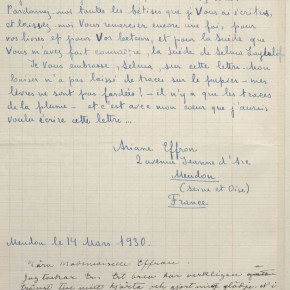 Pardonnez-moi toutes les bêtises que je Vous ai écrites,
et laissez-moi Vous remercier encore une fois, pour
vos livres et pour Vos lectures, et pour la Suède que
Vous m'avez fait connaître, la Suède de Selma Lagerlöf.
Je Vous embrasse, Selma, sur cette lettre. Mon
baiser n'a pas laissé de traces sur le papier – mes
lèvres ne sont pas fardées! – il n'y a que les traces
de la plume – et c'est avec mon cœur que j'aurais
voulu écrire cette lettre ...
Ariane Effron
2 avenue Jeanne d'Arc
Meudon
(Seine et Oise)
France
Meudon le 14 Mars 1930.
Kära Mademoiselle Effron.
Jag tackar Er. Ert brev har verkligen